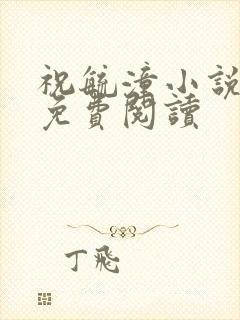 祝毓漳小說
免費閱讀
丁飛